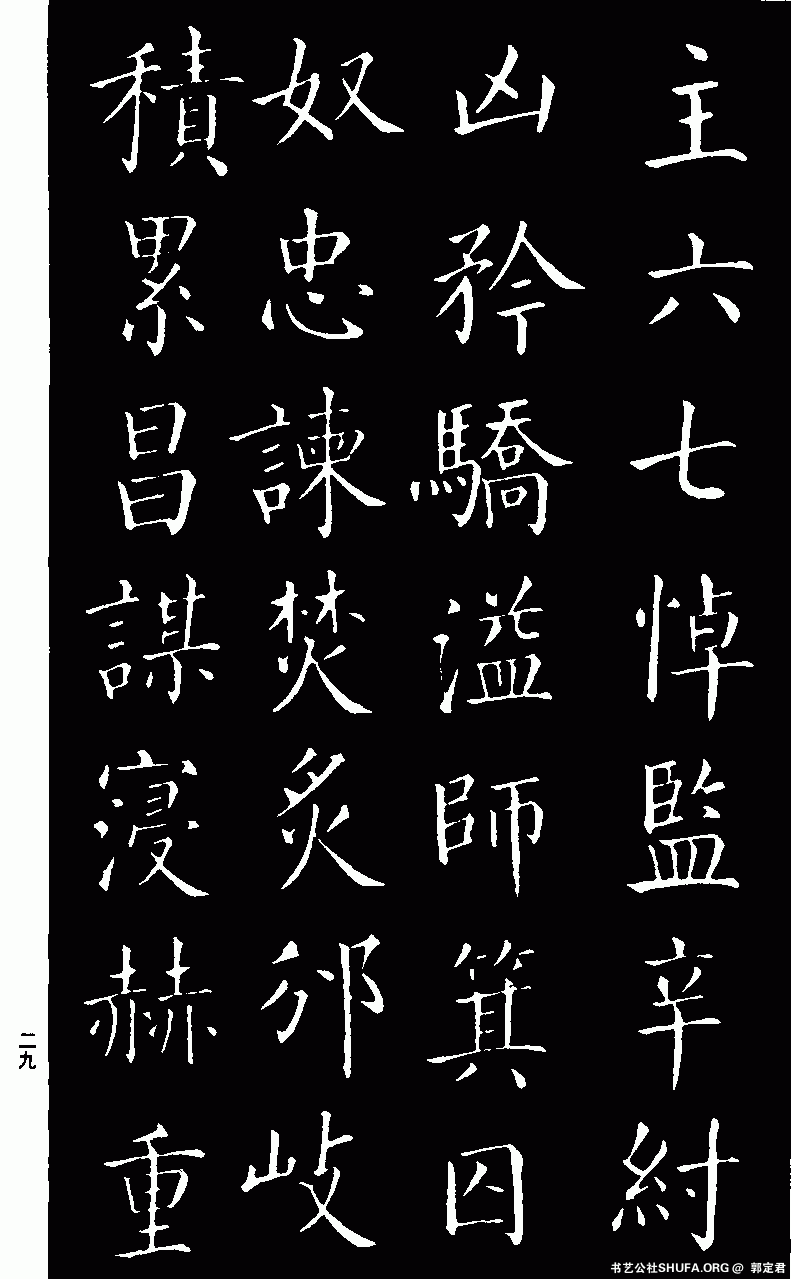 主六七悼監辛紂
凶矜驕溢師箕囚
奴忠諫焚炙邠岐
積累昌謀寖赫重
二九
书艺公社SHUFA.ORG @ 郭定君